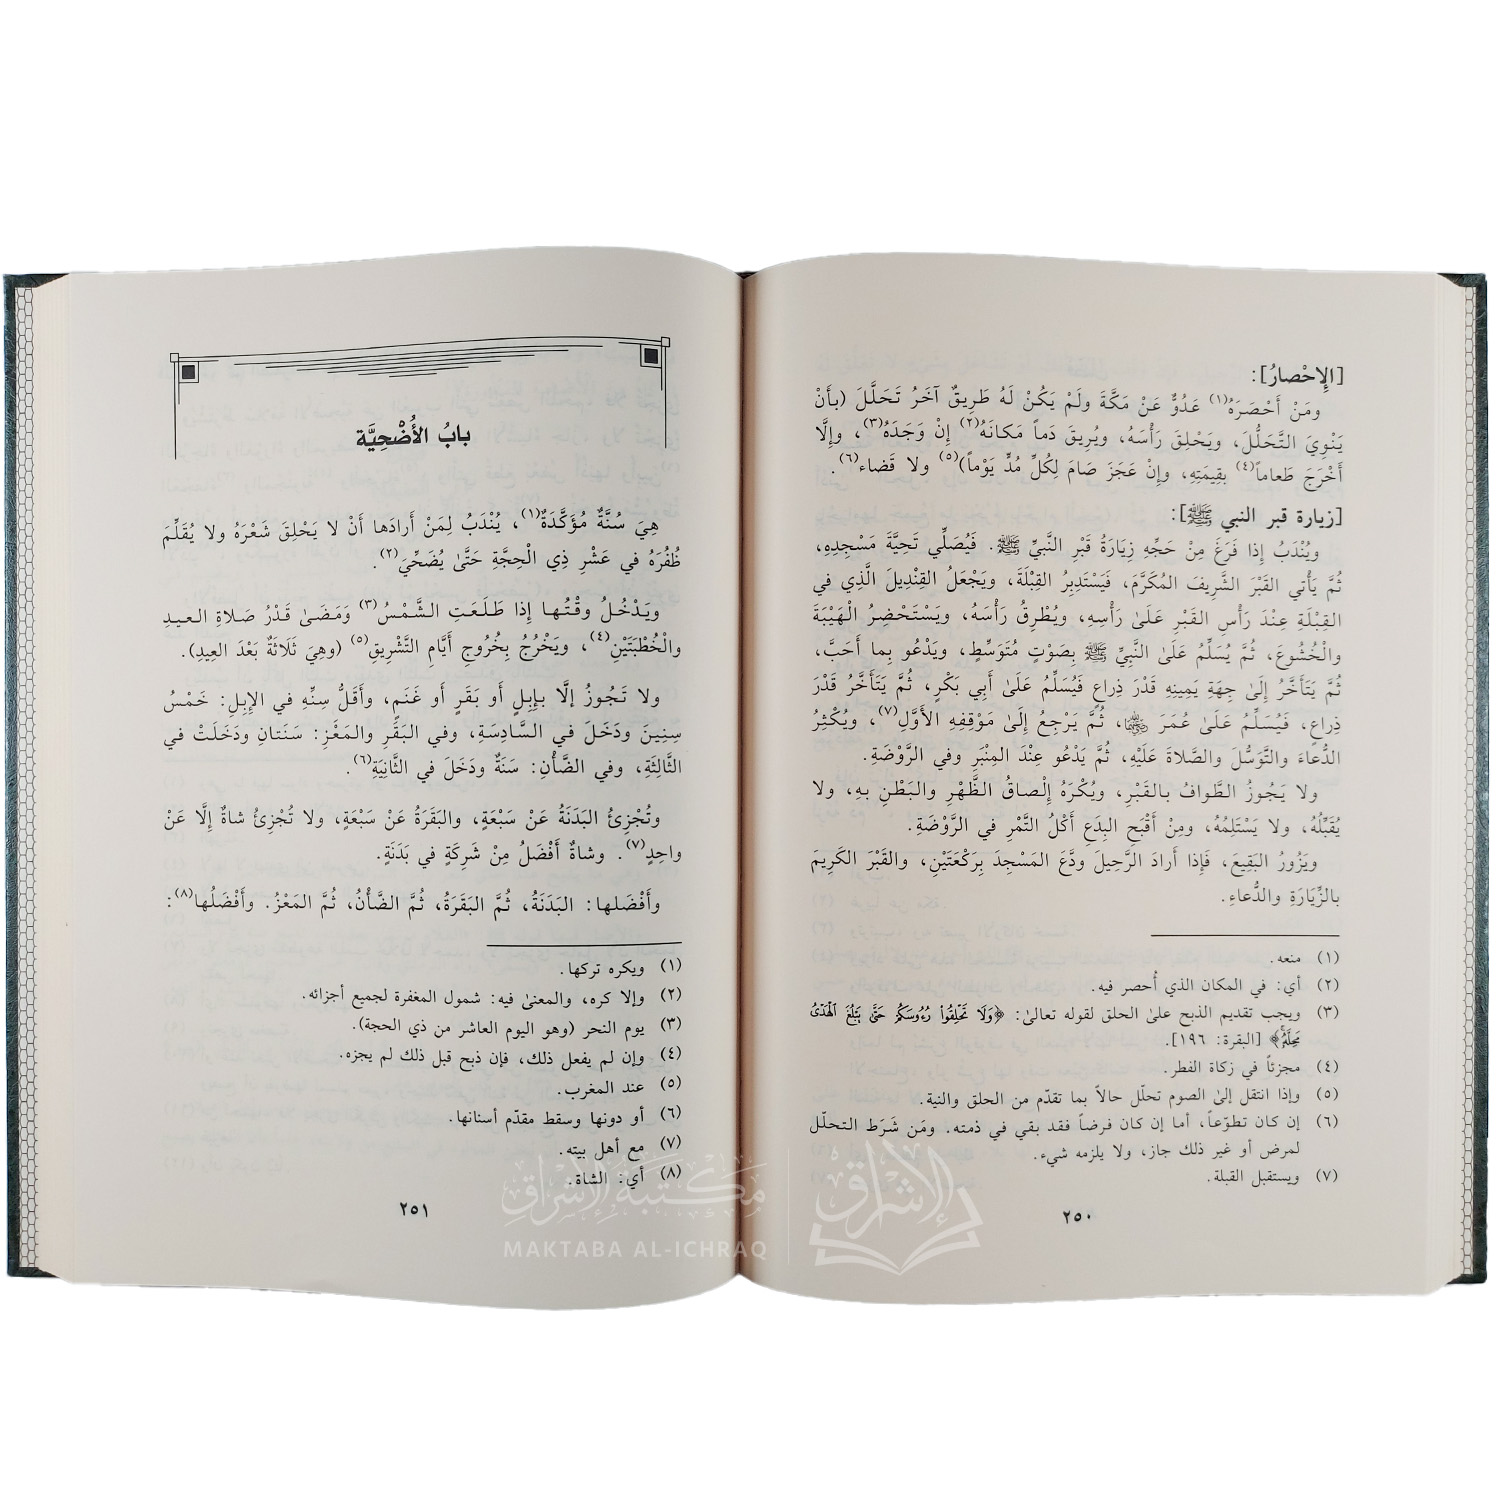 [الإحْصارُ]:
ومَنْ أَحْصَرَهُ(١) عَدُوٌّ عَنْ مَكَّةَ ولَمْ يَكُنْ لَهُ طَرِيقٌ آخَرُ تَحَلَّلَ (بأَنْ
يَنْوِيَ التَّحَلُّلَ، ويَحْلِقَ رَأْسَهُ، ويُرِيقَ دَماً مَكانَهُ(٢) إِنْ وَجَدَهُ(٣)، وإلَّا
أَخْرَجَ طَعاماً(٤) بِقِيمَتِهِ، وإِنْ عَجَزَ صَامَ لِكُلِّ مُدٍّ يَوْماً)(٥) ولا قَضاء(٦).
[زيارة قبر النبي ﷺ]:
ويُنْدَبُ إذا فَرَغَ مِنْ حَجِّهِ زِيَارَةُ قَبْرِ النَّبِيِّ ﷺ. فَيُصَلِّي تَحِيَّةَ مَسْجِدِهِ،
ثُمَّ يَأْتي القَبْرَ الشَّرِيفَ المُكَرَّمَ، فَيَسْتَدْبِرُ القِبْلَةَ، ويَجْعَلُ القِنْدِيلَ الَّذِي في
القِبْلَةِ عِنْدَ رَأْسِ القَبْرِ عَلَىٰ رَأْسِهِ، ويُطْرِقُ رَأْسَهُ، ويَسْتَحْضِرُ الْهَيْبَةَ
والْخُشُوعَ، ثُمَّ يُسَلِّمُ عَلَىٰ النَّبِيِّ ﷺ بِصَوْتٍ مُتَوَسِّطٍ، ويَدْعُو بِما أَحَبَّ،
ثُمَّ يَتَأَخَّرُ إِلَىٰ جِهَةِ يَمِينِهِ قَدْرَ ذِراعٍ فَيُسَلِّمُ عَلَىٰ أَبِي بَكْرٍ، ثُمَّ يَتَأَخَّرُ قَدْرَ
ذِراعٍ، فَيُسَلِّمُ عَلَىٰ عُمَرَ ، ثُمَّ يَرْجِعُ إِلَىٰ مَوْقِفِهِ الأَوَّلِ(٧)، ويُكْثِرُ
الدُّعاءَ والتَّوَسُّلَ والصَّلاةَ عَلَيْهِ، ثُمَّ يَدْعُو عِنْدَ المِنْبَرِ وفي الرَّوْضَةِ.
ولا يَجُوزُ الطَّوافُ بالقَبْرِ، ويُكْرَهُ إِلْصاقُ الظَّهْرِ والبَطْنِ بهِ، ولا
يُقَبِّلُهُ، ولا يَسْتَلِمُهُ، ومِنْ أَقْبَحِ البِدَعِ أَكْلُ التَّمْرِ في الرَّوْضَةِ.
ويَزُورُ البَقِيعَ، فَإِذا أَرادَ الرَّحِيلَ ودَّعَ المَسْجِدَ بِرَكْعَتَيْنِ، والقَبْرَ الكَرِيمَ
بالزِّيَارَةِ والدُّعاءِ.
(١) منعه.
(٢) أي: في المكان الذي أُحصر فيه.
(٣) ويجب تقديم الذبح علىٰ الحلق لقوله تعالىٰ: ﴿وَلَا تَحْلِقُوا۟ رُءُوسَكُمْ حَتَّىٰ يَبْلُغَ ٱلْهَدْىُ
مَحِلَّهُۥ﴾ [البقرة: ١٩٦].
(٤) مجزئاً في زكاة الفطر.
(٥) وإذا انتقل إلىٰ الصوم تحلّل حالاً بما تقدّم من الحلق والنية.
(٦) إن كان تطوّعاً، أما إن كان فرضاً فقد بقي في ذمته. ومَن شَرَط التحلّل
لمرض أو غير ذلك جاز، ولا يلزمه شيء.
(٧) ويستقبل القبلة.
٢٥٠
بابُ الأُضْحِيَّة
هِيَ سُنَّةٌ مُؤَكَّدَةٌ(١)، يُنْدَبُ لِمَنْ أَرادَها أَنْ لا يَحْلِقَ شَعْرَهُ ولا يُقَلِّمَ
ظُفُرَهُ في عَشْرِ ذِي الْحِجَّةِ حَتَّىٰ يُضَحِّيَ(٢).
ويَدْخُلُ وقْتُها إذا طَلَعَتِ الشَّمْسُ(٣) وَمَضَىٰ قَدْرُ صَلاةِ العيدِ
والْخُطْبَتَيْنِ(٤)، ويَخْرُجُ بِخُروجِ أَيَّامِ التَّشْرِيقِ(٥) (وهِيَ ثَلاثَةٌ بَعْدَ العِيدِ).
ولا تَجُوزُ إلَّا بإبِلٍ أَو بَقَرٍ أَو غَنَمٍ، وأَقَلُّ سِنِّهِ في الإبِلِ: خَمْسُ
سِنِينَ ودَخَلَ في السَّادِسَةِ، وفي البَقَرِ والمَعْزِ: سَنَتانِ ودَخَلَتْ في
الثَّالِثَةِ، وفي الضَّأْنِ: سَنَةٌ ودَخَلَ في الثَّانِيَةِ(٦).
وتُجْزِئُ البَدَنَةُ عَنْ سَبْعَةٍ، والبَقَرَةُ عَنْ سَبْعَةٍ، ولا تُجْزِئُ شاةٌ إلَّا عَنْ
واحِدٍ(٧). وشاةٌ أَفْضَلُ مِنْ شَرِكَةٍ في بَدَنَةٍ.
وأَفْضَلها: البَدَنَةُ، ثُمَّ البَقَرَةُ، ثُمَّ الضَّأْنُ، ثُمَّ المَعْزُ. وأَفْضَلُها(٨):
(١) ويكره تركها.
(٢) وإلا كره، والمعنىٰ فيه: شمول المغفرة لجميع أجزائه.
(٣) يوم النحر (وهو اليوم العاشر من ذي الحجة).
(٤) وإن لم يفعل ذلك، فإن ذبح قبل ذلك لم يجزه.
(٥) عند المغرب.
(٦) أو دونها وسقط مقدّم أسنانها.
(٧) مع أهل بيته.
(٨) أي: الشاة.
٢٥١
مكتبة الإشراق
MAKTABA AL-ICHRAQ
الإشراق